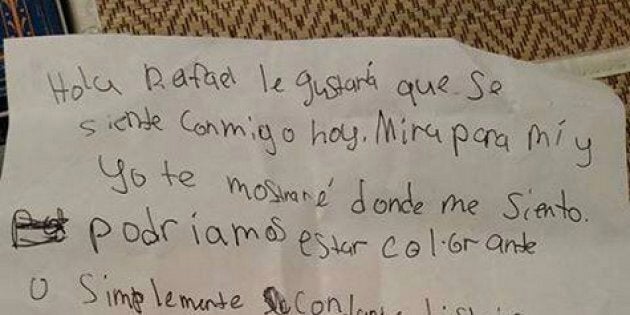 Hola Rafael le gustará que se
siente conmigo hoy. Mira para mí y
yo te mostraré donde me siento.
podriamos estar colorante
O simplemente